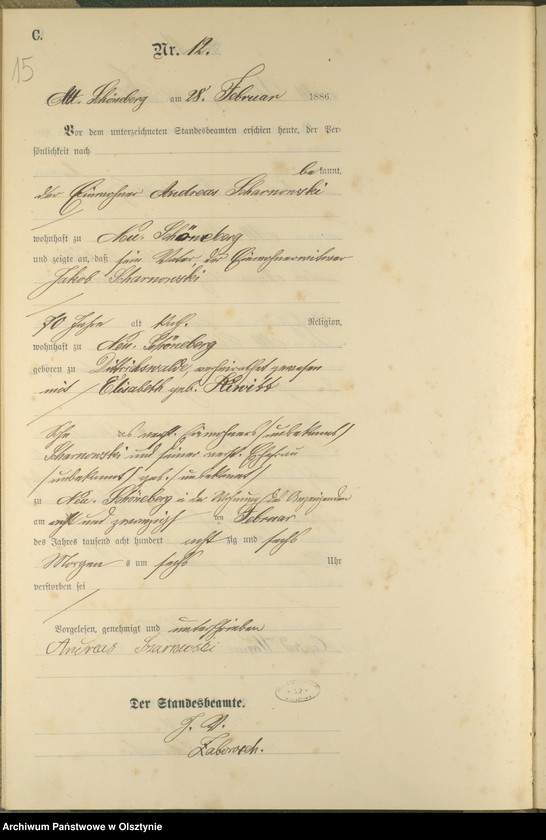 C.
Nr. 12.
15
Alt-Schöneberg am 28. Februar 1886.
Vor dem unterzeichneten Standesbeamten erschien heute, der Per-
sönlichkeit nach
be kannt,
der Einwohner Andreas Scharnowski
wohnhaft zu Neu-Schöneberg
und zeigte an, daß sein Vater, der Einwohnerwitwer
Jakob Scharnowski
70 Jahre alt kath. Religion,
wohnhaft zu Neu-Schöneberg
geboren zu Dietrichswalde, verheirathet gewesen
mit Elisabeth geb.
Sohn des verst. Einwohners (unbekannt)
Scharnowski und seiner verst. Ehefrau
(unbekannt) geb. (unbekannt)
zu Neu-Schöneberg in der Wohnung des Anzeigenden
am acht und zwanzigsten Februar
des Jahres tausend acht hundert acht zig und sechs
Morgens um sechs Uhr
verstorben sei
Vorgelesen, genehmigt und unterschrieben
Andreas
Der Standesbeamte.
J. V.
Zaborosch.
Archiwum Państwowe w Olsztynie